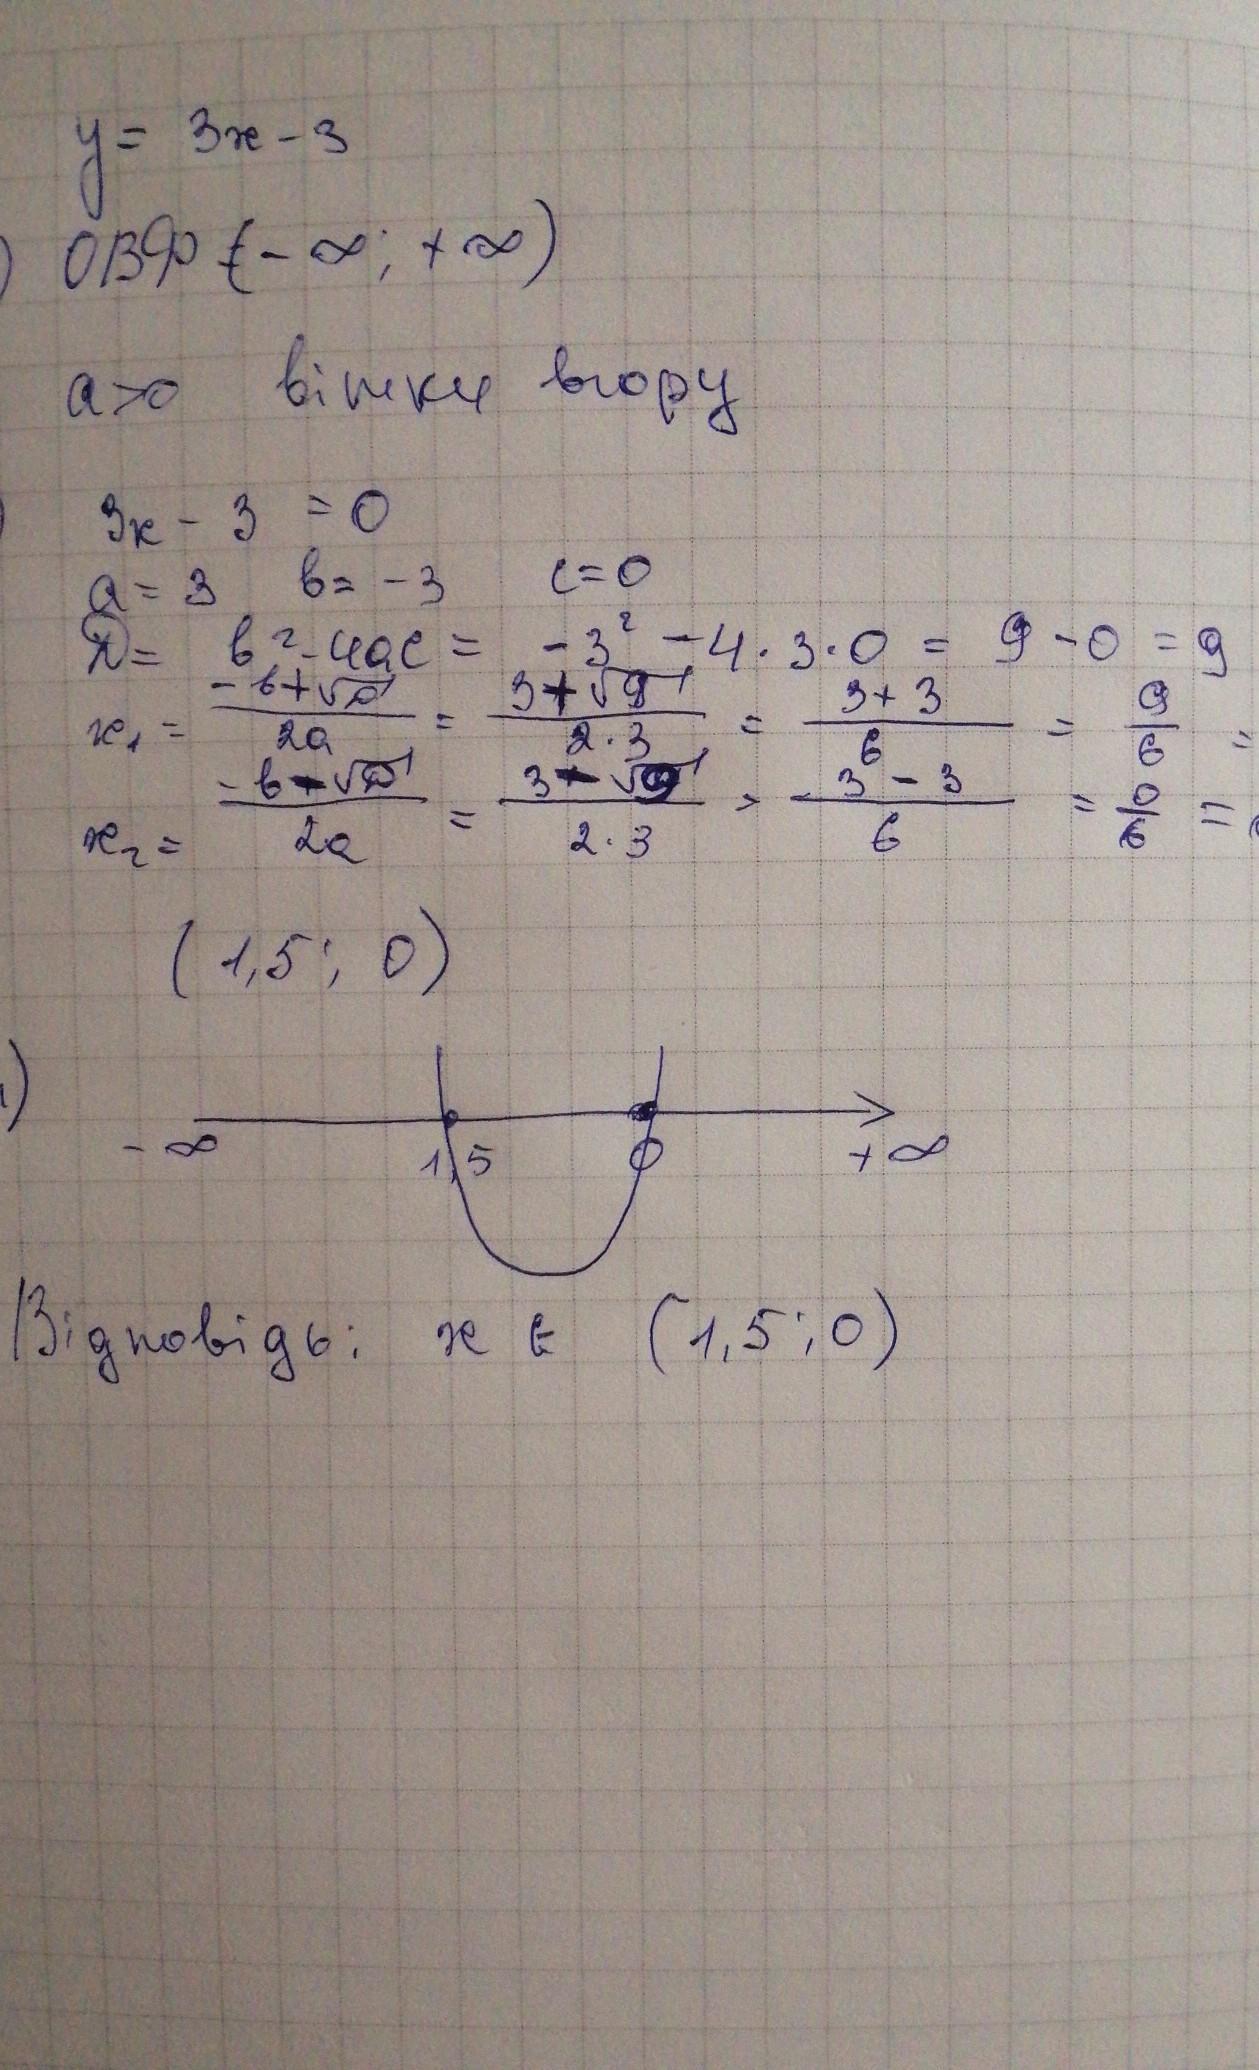 y = 3x - 3
) ОВФ (- ∞; + ∞)
a>0 вітки вгору
) 3x - 3 = 0
a = 3 b = -3 c = 0
D = b² - 4ac = -3² - 4·3·0 = 9 - 0 = 9
x₁ = (-b+√D)/(2a) = (3+√9)/(2·3) = (3+3)/6 = 9/6 =
x₂ = (-b-√D)/(2a) = (3-√9)/(2·3) = (3-3)/6 = 0/6 =
(1,5; 0)
)
- ∞ 1,5 0 + ∞
Відповідь: x ∈ (1,5; 0)